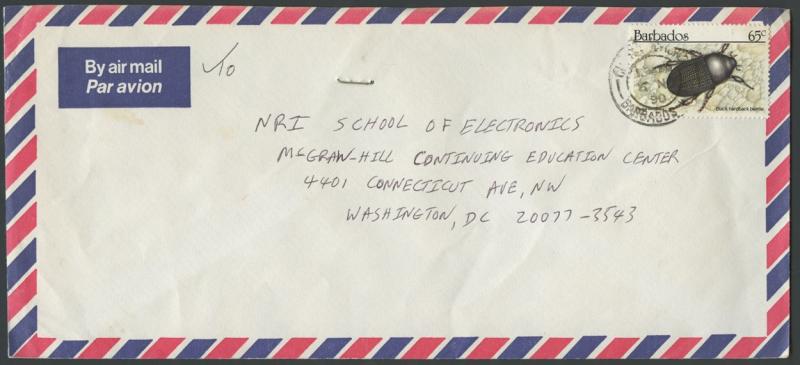 By air mail
Par avion
To
Barbados 65c
Black hardback beetle
90
BARBADOS
NRI SCHOOL OF ELECTRONICS
McGRAW-HILL CONTINUING EDUCATION CENTER
4401 CONNECTICUT AVE, NW
WASHINGTON, DC 20077-3543